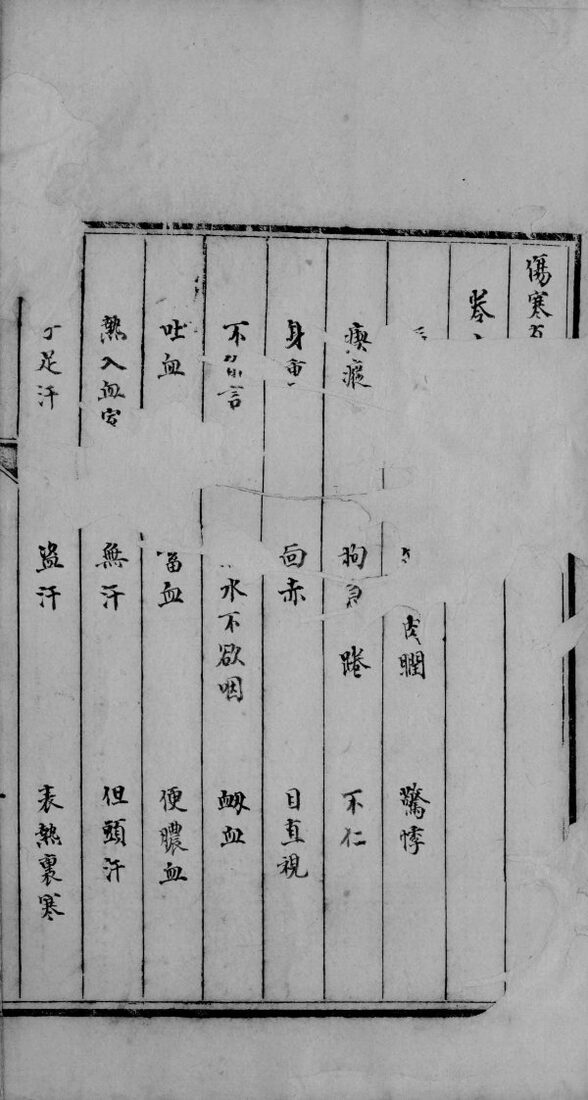 傷寒
卷
肉瞤 驚悸
瘈瘲 拘急 踡 不仁
身重 面赤 目直視
不能言 水不欲咽 衂血
吐血 畜血 便膿血
熱入血室 無汗 但頭汗
足汗 盜汗 表熱裏寒